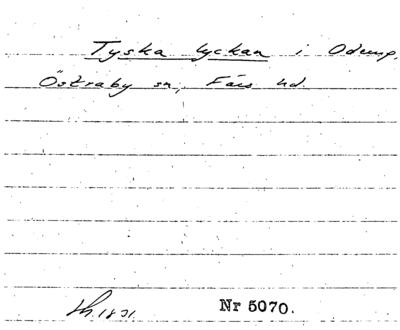 Tyska lyckan i Odemp,
Östraby sn, Färs hd.
Nr 5070.